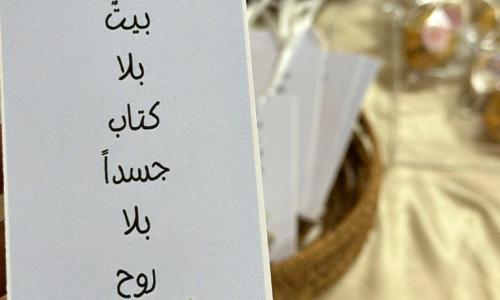 بيتٌ
بلا
كتاب
جسداً
بلا
روح